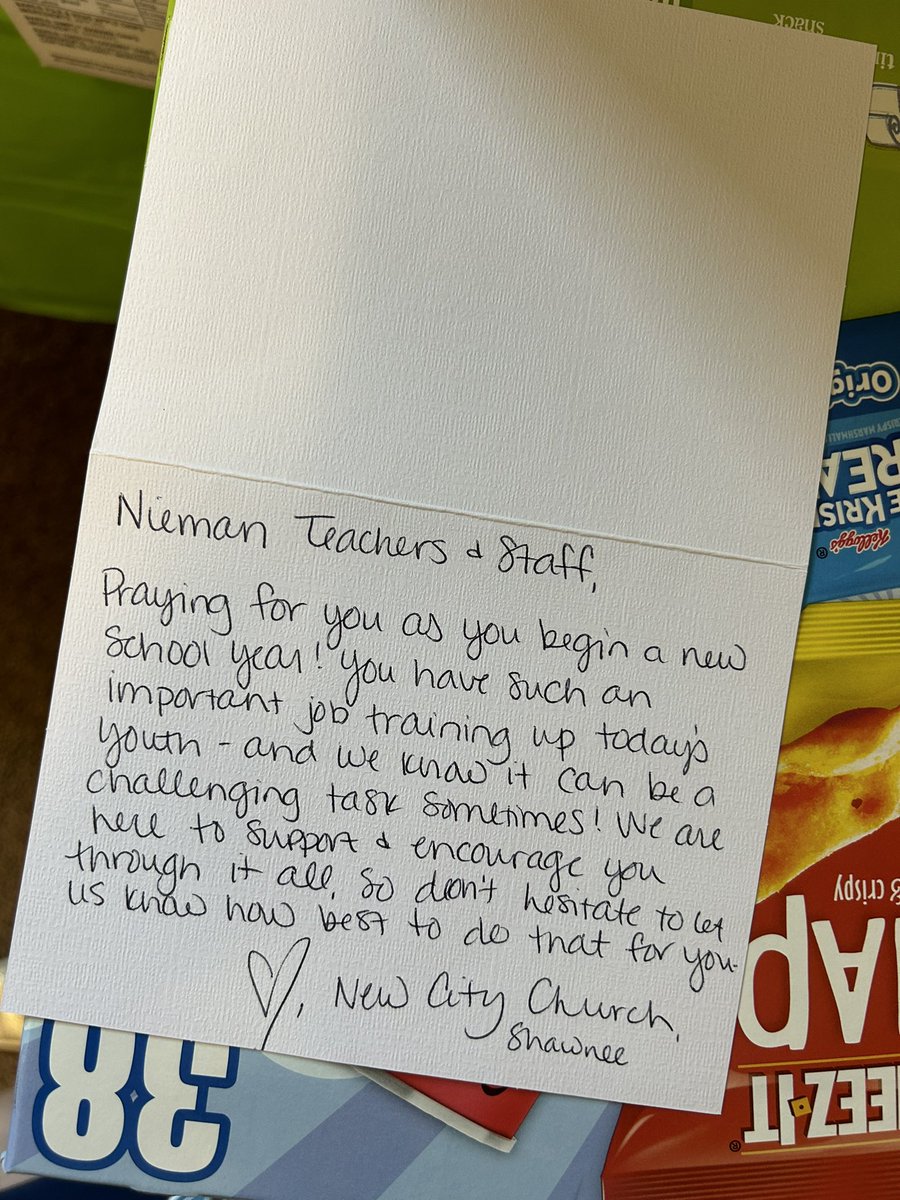 snack
Nieman Teachers & Staff,
Praying for you as you begin a new
school year! You have such an
important job training up today's
youth - and we know it can be a
challenging task sometimes! We are
here to support & encourage you
through it all, so don't hesitate to let
us know how best to do that for you.
♡, New City Church,
Shawnee
Orig
RISPY MARSHMALL
REA
E KRISP
Kellogg's
& crispy
NAP
EEZ-IT
38